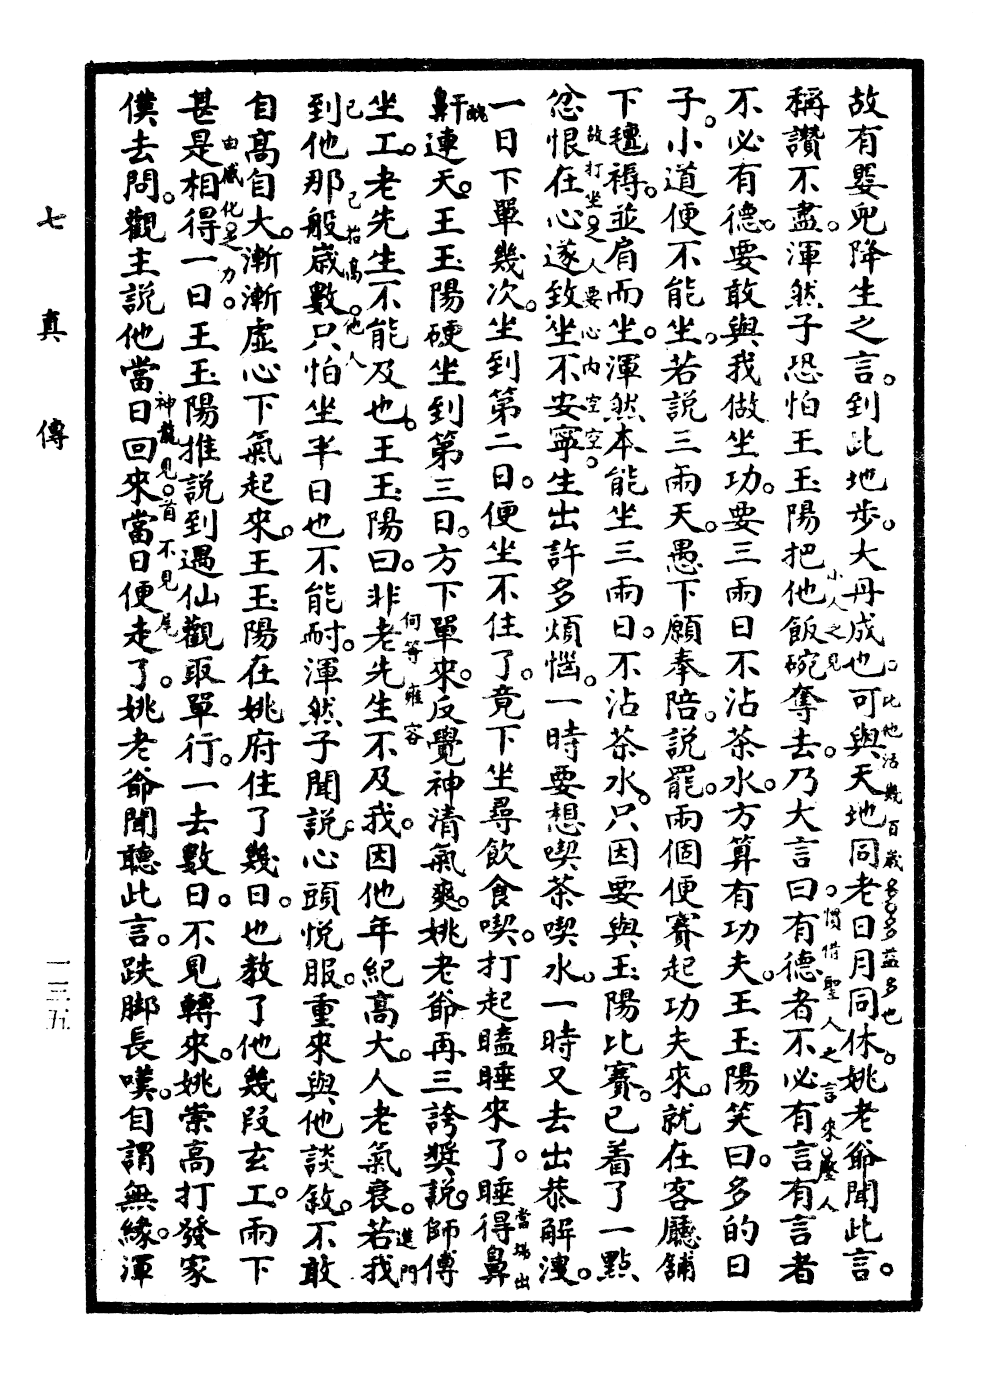 故有嬰兒降生之言。到此地步。大丹成也。可與天地同老日月同休。姚老爺聞此言。
比他活幾百歲多多益多也
稱讚不盡。渾然子恐怕王玉陽把他飯碗奪去。乃大言曰有德者不必有言有言者
小人之見
慣借聖人之言來壓人
不必有德。要敢與我做坐功。要三兩日不沾茶水。方算有功夫。王玉陽笑曰。多的日
子。小道便不能坐。若說三兩天。愚下願奉陪。說罷。兩個便賽起功夫來。就在客廳舖
下氊褥。並肩而坐。渾然本能坐三兩日。不沾茶水。只因要與玉陽比賽。已着了一點
故打坐之人要心內空空。
忿恨在心遂致坐不安寧生出許多煩惱。一時要想喫茶喫水。一時又去出恭解溲。
一日下單幾次。坐到第二日。便坐不住了。竟下坐尋飲食喫。打起瞌睡來了。睡得鼻
當場出醜
鼾連天。王玉陽硬坐到第三日。方下單來。反覺神清氣爽。姚老爺再三誇獎說。師傅
坐工。老先生不能及也。王玉陽曰。非老先生不及我。因他年紀高大。人老氣衰。若我
何等雍容
進門
到他那般歲數只怕坐半日也不能耐。渾然子聞說。心頭悅服。重來與他談敘。不敢
己抬高。他人
自高自大。漸漸虛心下氣起來。王玉陽在姚府住了幾日。也教了他幾段玄工。兩下
由感化之力。
甚是相得一日王玉陽推說到遇仙觀取單行。一去數日。不見轉來。姚崇高打發家
神龍見首不見尾
僕去問。觀主說他當日回來當日便走了。姚老爺聞聽此言。跌脚長嘆。自謂無緣。渾
七真傳
一三五